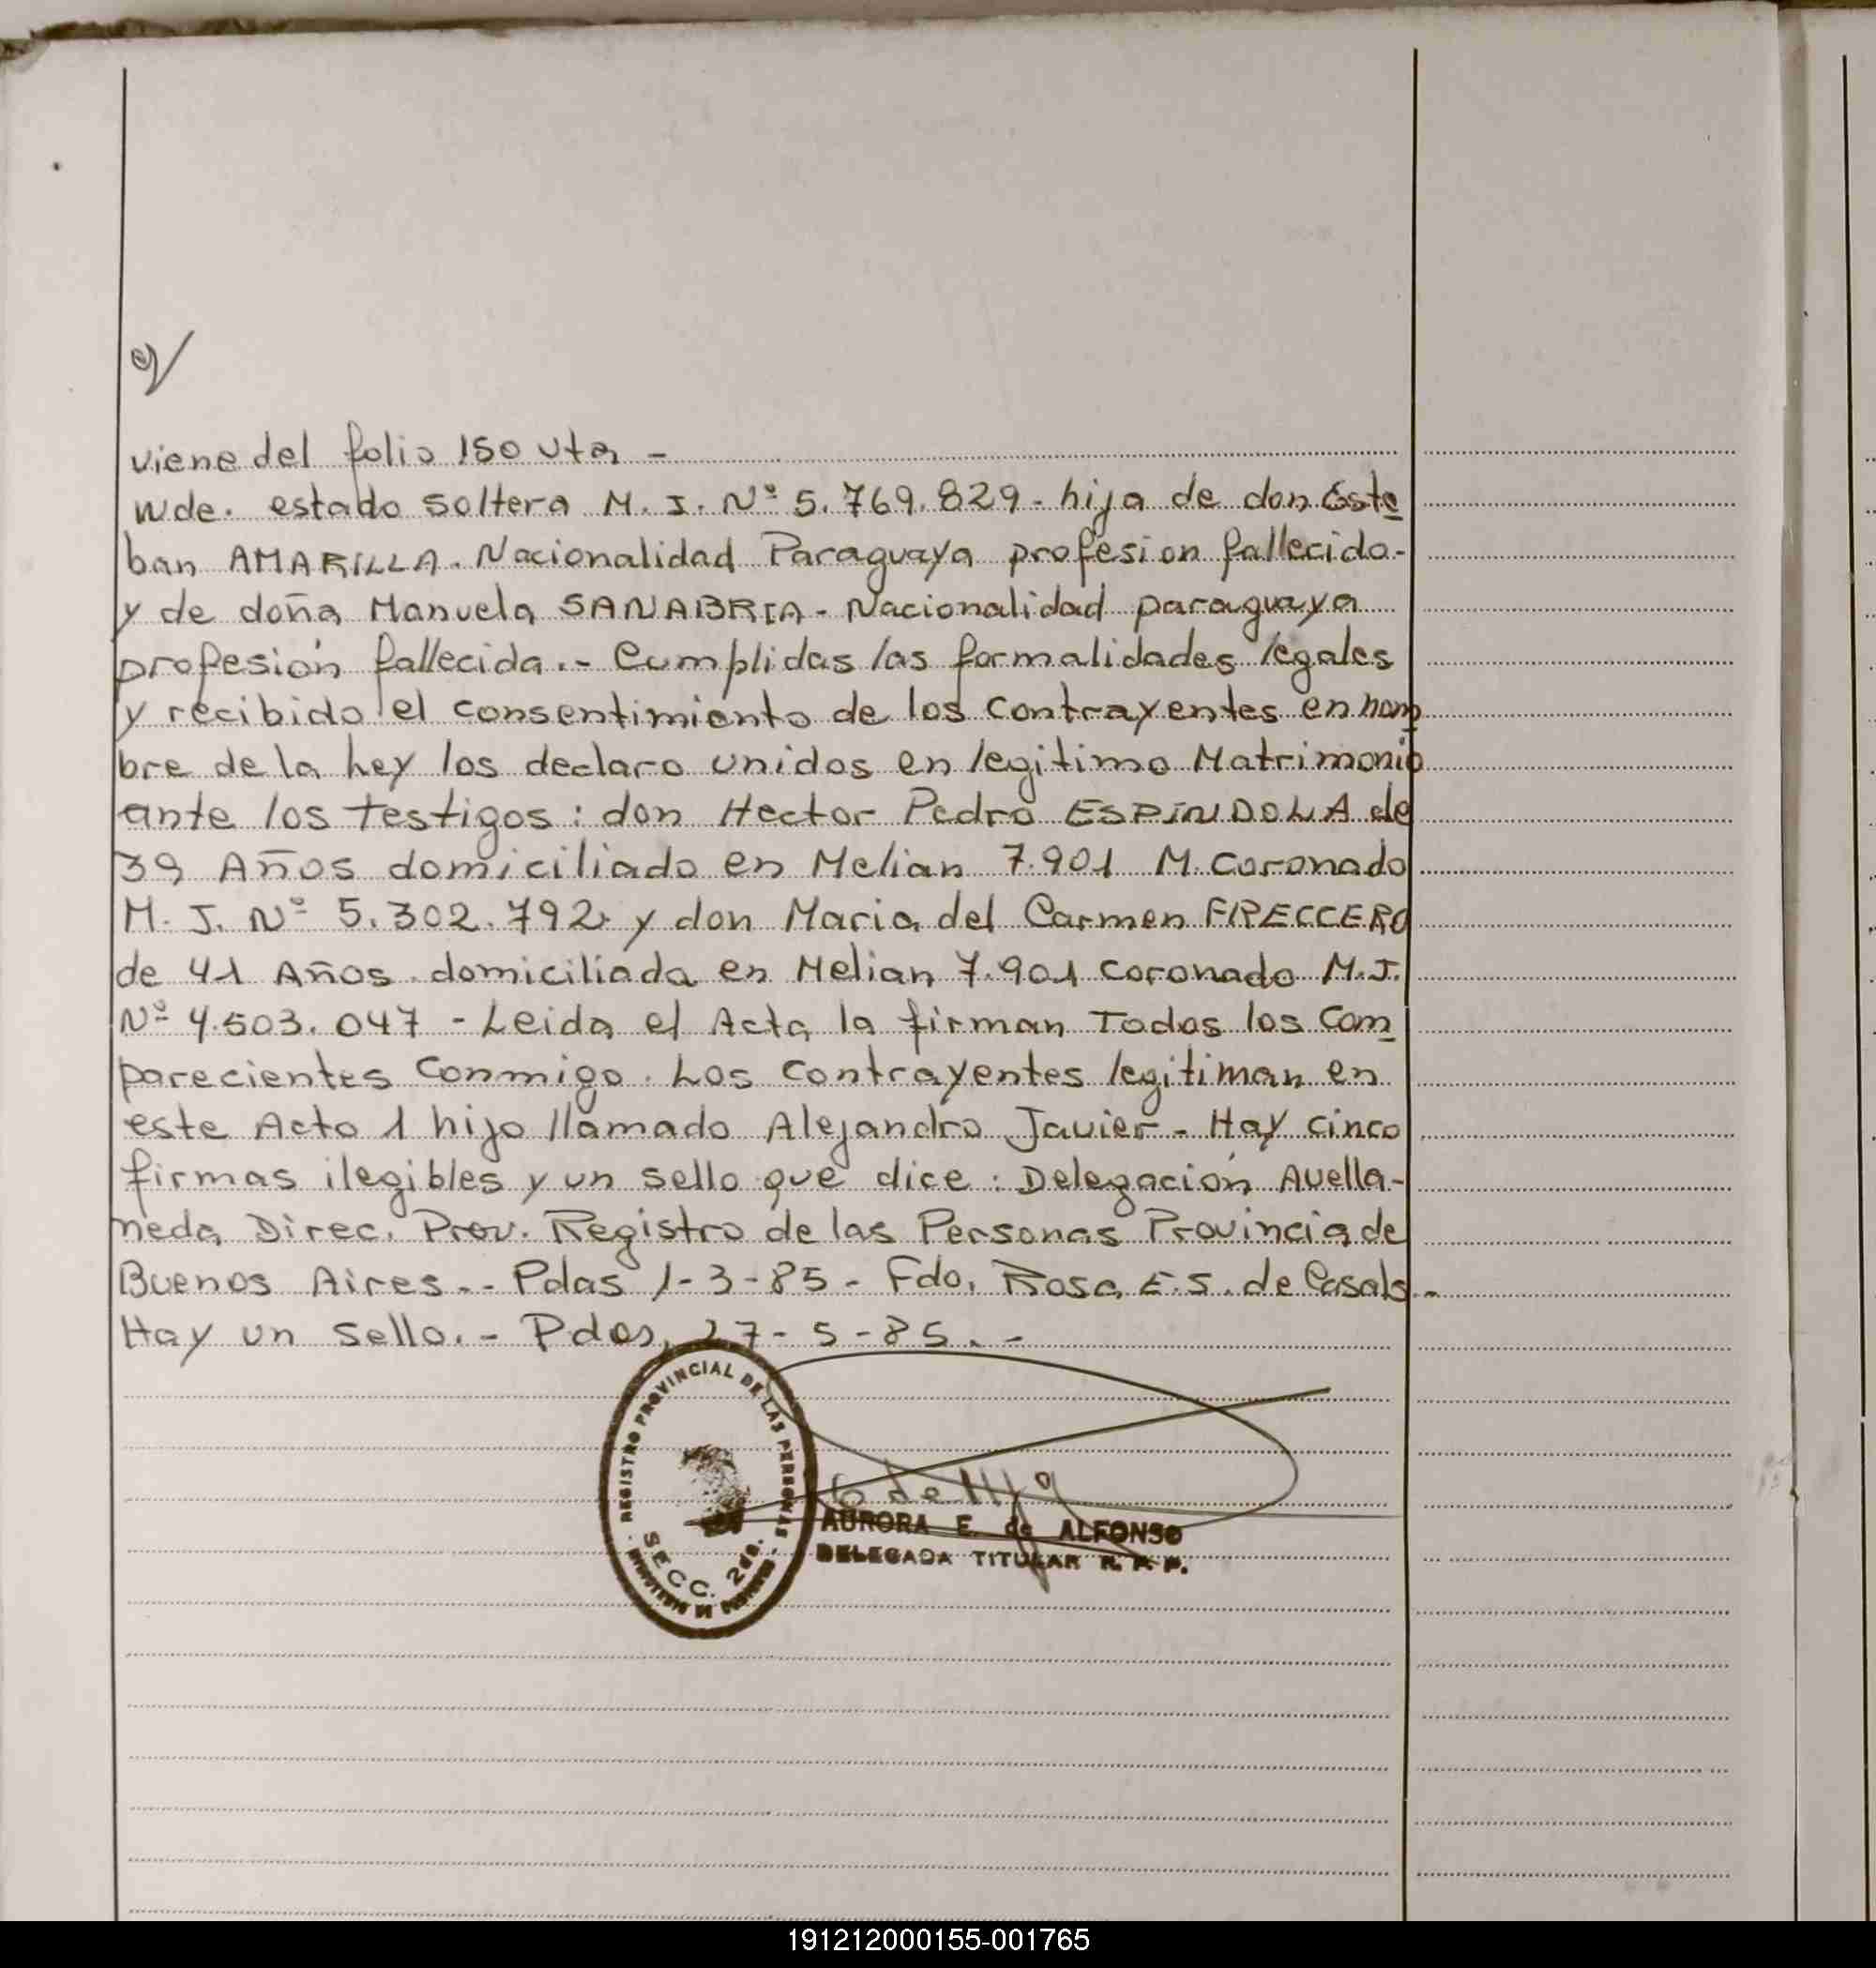 viene del folio 150 vta -
Wde. estado soltera M. I. Nº 5.769.829 - hija de don Este
ban AMARILLA. Nacionalidad Paraguaya profesion fallecido -
y de doña Manuela SANABRIA - Nacionalidad paraguaya
profesión fallecida. - Cumplidas las formalidades legales
y recibido el consentimiento de los contrayentes en nom
bre de la Ley los declaro unidos en legitimo Matrimonio
ante los testigos: don Hector Pedro ESPINDOLA de
39 Años domiciliado en Melian 7.901 M. Coronado
M. J. Nº 5.302.792 y don Maria del Carmen FRECCERO
de 41 Años domiciliada en Melian 7.901 Coronado M.J.
Nº 4.503.047 - Leida el Acta la firman Todos los Com
parecientes Conmigo. Los Contrayentes legitiman en
este Acto 1 hijo llamado Alejandro Javier - Hay cinco
firmas ilegibles y un sello que dice: Delegación Avella-
neda Direc. Prov. Registro de las Personas Provincia de
Buenos Aires. - Pdas 1-3-85 - Fdo. Rosa E.S. de Casals. -
Hay un sello. - Pdas, 27-5-85. -
REGISTRO PROVINCIAL DE LAS PERSONAS
SECC. 2da.
AURORA E. de ALFONSO
DELEGADA TITULAR R. P. P.
191212000155-001765